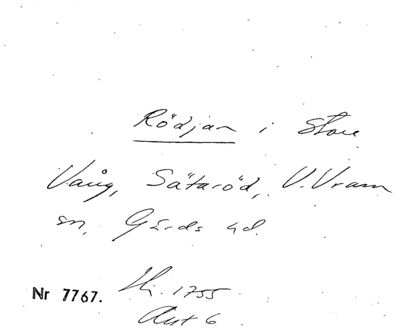 Rödjan i Store
Vång, Sätaröd, V. Vram
sn, Gärds hd.
Nr 7767.
1755
Akt 6